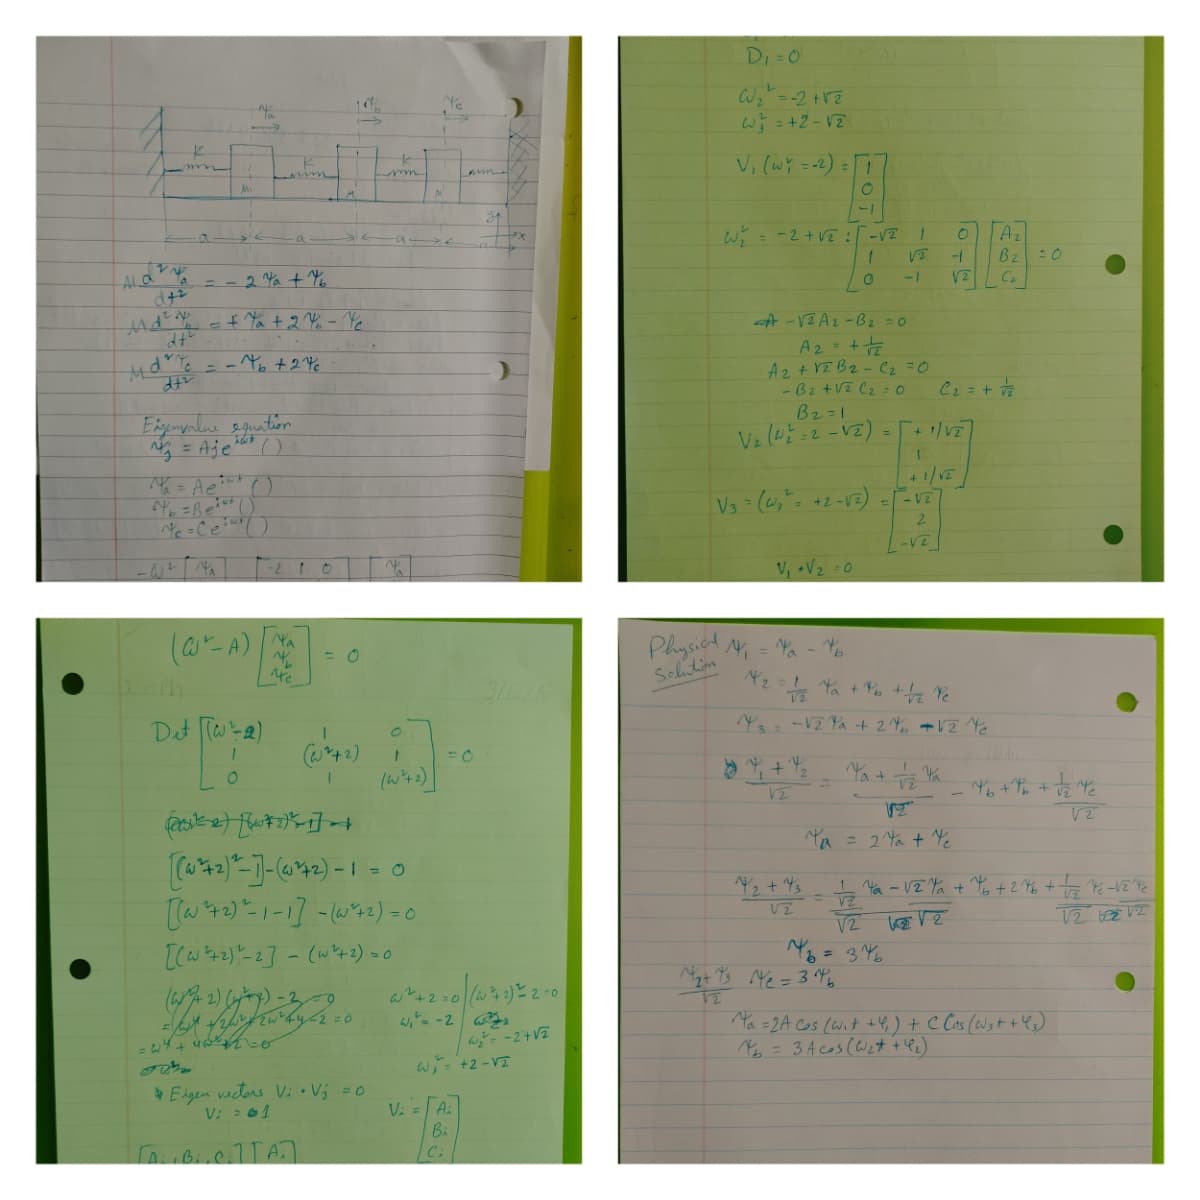 ψa ψb ψc
K K k
M M M
a a a
x
M d²ψa/dt² = - 2ψa + ψb
M d²ψb/dt² = + ψa + 2ψb - ψc
M d²ψc/dt² = - ψb + 2ψc
Eigenvalue equation
ψj = Aje^iωt ( )
ψa = Ae^iωt ( )
ψb = Be^iωt ( )
ψc = Ce^iωt ( )
-ω² [ψa] [-2 1 0] [ψa]
D₁ = 0
ω₂² = -2 + √2
ω₃² = +2 - √2
V₁ (ω₁² = -2) = [1
0
-1]
ω₂² = -2 + √2 : [-√2 1 0] [A₂]
[1 √2 -1] [B₂] = 0
[0 -1 √2] [C₂]
-√2 A₂ - B₂ = 0
A₂ = + 1/√2
A₂ + √2 B₂ - C₂ = 0
- B₂ + √2 C₂ = 0 C₂ = + 1/√2
B₂ = 1
V₂ (ω₂² = 2 - √2) = [+ 1/√2
1
+ 1/√2]
V₃ = (ω₃² = +2 - √2) = [-√2
2
-√2]
V₁ • V₂ = 0
(ω² - A) [ψa
ψb
ψc] = 0
Det [(ω² - 2) 1 0]
[1 (ω² + 2) 1] = 0
[0 1 (ω² + 2)]
[(ω² + 2)² - 1] - (ω² + 2) - 1 = 0
[(ω² + 2)² - 1 - 1] - (ω² + 2) = 0
[(ω² + 2)² - 2] - (ω² + 2) = 0
ω² + 2 = 0 | (ω² + 2)² - 2 = 0
ω₁² = -2
ω₂² = -2 + √2
ω₃² = +2 - √2
Eigen vectors Vi • Vj = 0
Vi = [Ai
Bi
Ci]
Physical Solution
ψ₁ = ψa - ψb
ψ₂ = 1/√2 ψa + ψb + 1/√2 ψc
ψ₃ = -√2 ψa + 2ψb - √2 ψc
(ψ₁ + ψ₂)/√2 = (ψa + 1/√2 ψa)/√2 - (ψb + ψb + 1/√2 ψc)/√2
ψa = 2ψa + ψc
(ψ₂ + ψ₃)/√2 = (1/√2 ψa - √2 ψa + ψb + 2ψb + 1/√2 ψc - √2 ψc)/√2
ψb = 3ψb
(ψ₂ + ψ₃)/√2 ψc = 3ψb
ψa = 2A cos (ω₁t + φ₁) + C cos (ω₃t + φ₃)
ψb = 3A cos (ω₂t + φ₂)